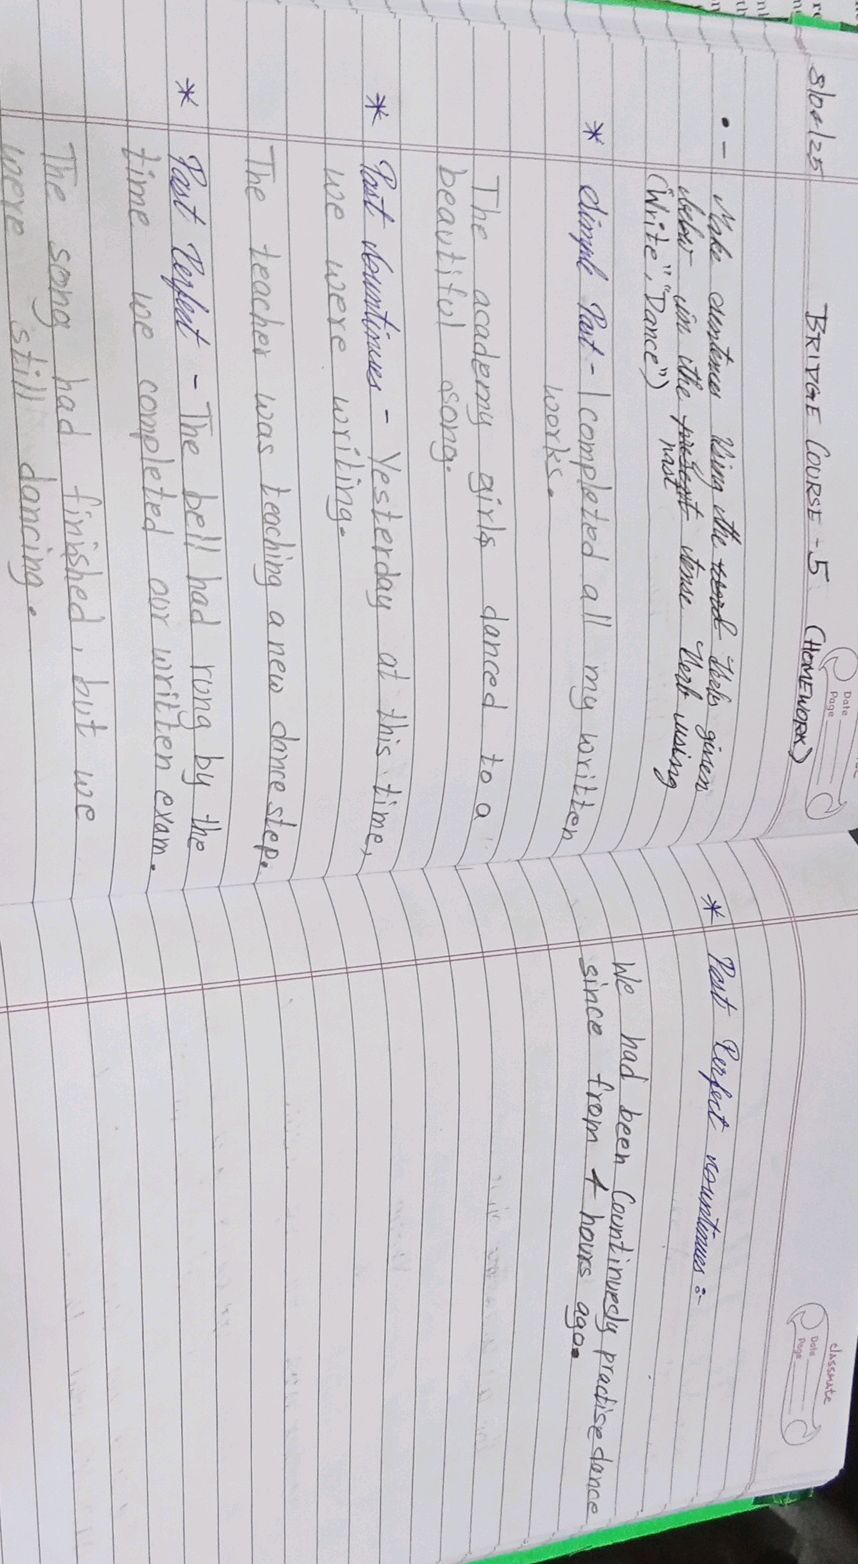 8/04/25
BRIDGE COURSE - 5 (HOMEWORK)
Date
Page
• - Make sentences Using the word Verb given
below in the present tense Verb using
past
("Write", "Dance")
* Simple Past - I completed all my written
works.
The academy girls danced to a
beautiful song.
* Past Countinues - Yesterday at this time,
we were writing.
The teacher was teaching a new dance step.
* Past Perfect - The bell had rung by the
time we completed our written exam.
The song had finished, but we
were still dancing.
classmate
Date
Page
* Past Perfect countinues :-
We had been Countinuesly practise dance
since from hours ago.